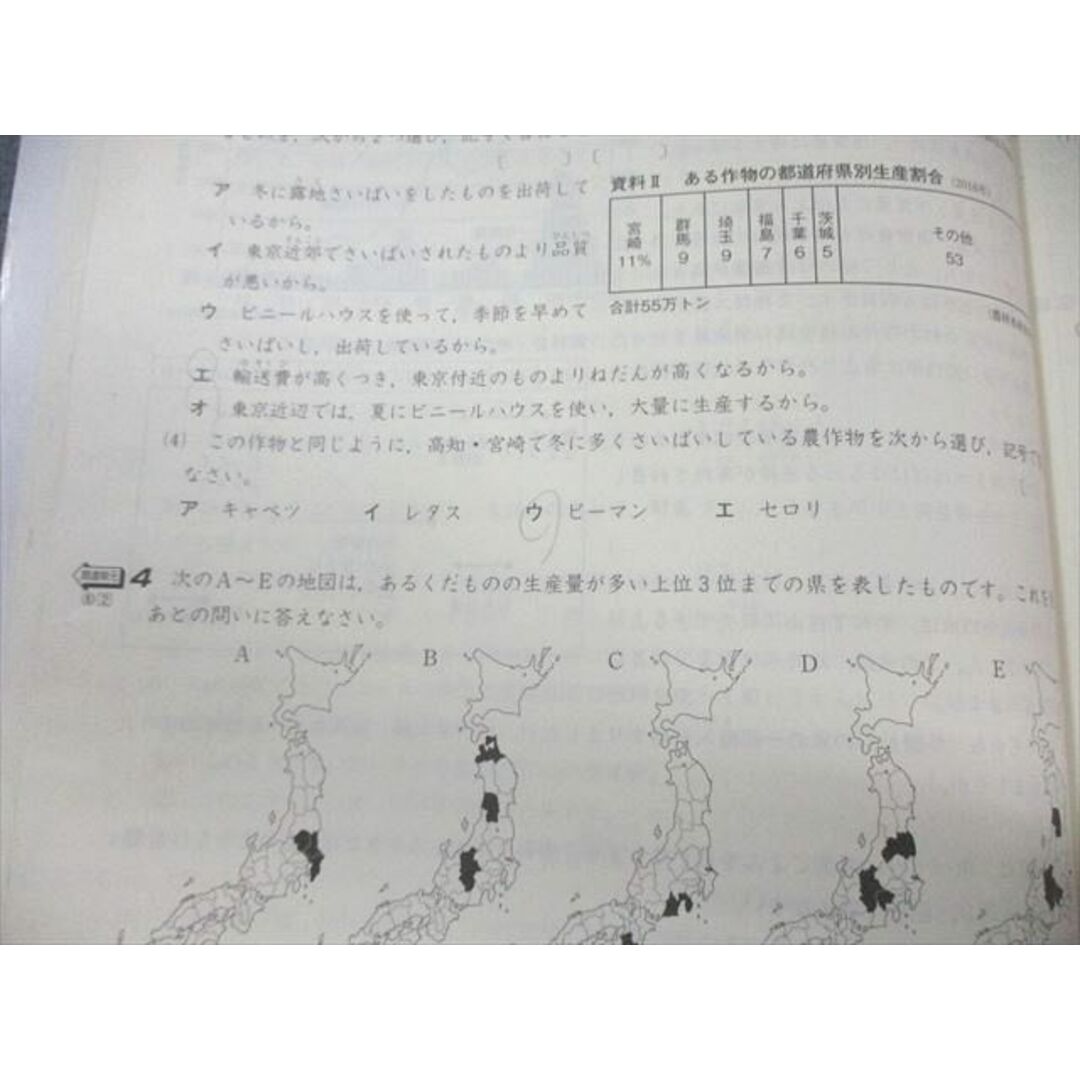 ア 冬に露地さいばいをしたものを出荷して
いるから。
イ 東京近郊でさいばいされたものより品質
が悪いから。
ウ ビニールハウスを使って，季節を早めて
さいばいし，出荷しているから。
エ 輸送費が高くつき，東京付近のものよりねだんが高くなるから。
オ 東京近辺では，夏にビニールハウスを使い，大量に生産するから。
資料Ⅱ ある作物の都道府県別生産割合（2016年）
宮崎 11% 群馬 9 埼玉 9 福島 7 千葉 6 茨城 5 その他 53
合計55万トン
(4) この作物と同じように，高知・宮崎で冬に多くさいばいしている農作物を次から選び，記号で
なさい。
ア キャベツ イ レタス ウ ピーマン エ セロリ
4 次のA～Eの地図は，あるくだものの生産量が多い上位3位までの県を表したものです。これを
①② あとの問いに答えなさい。
A B C D E